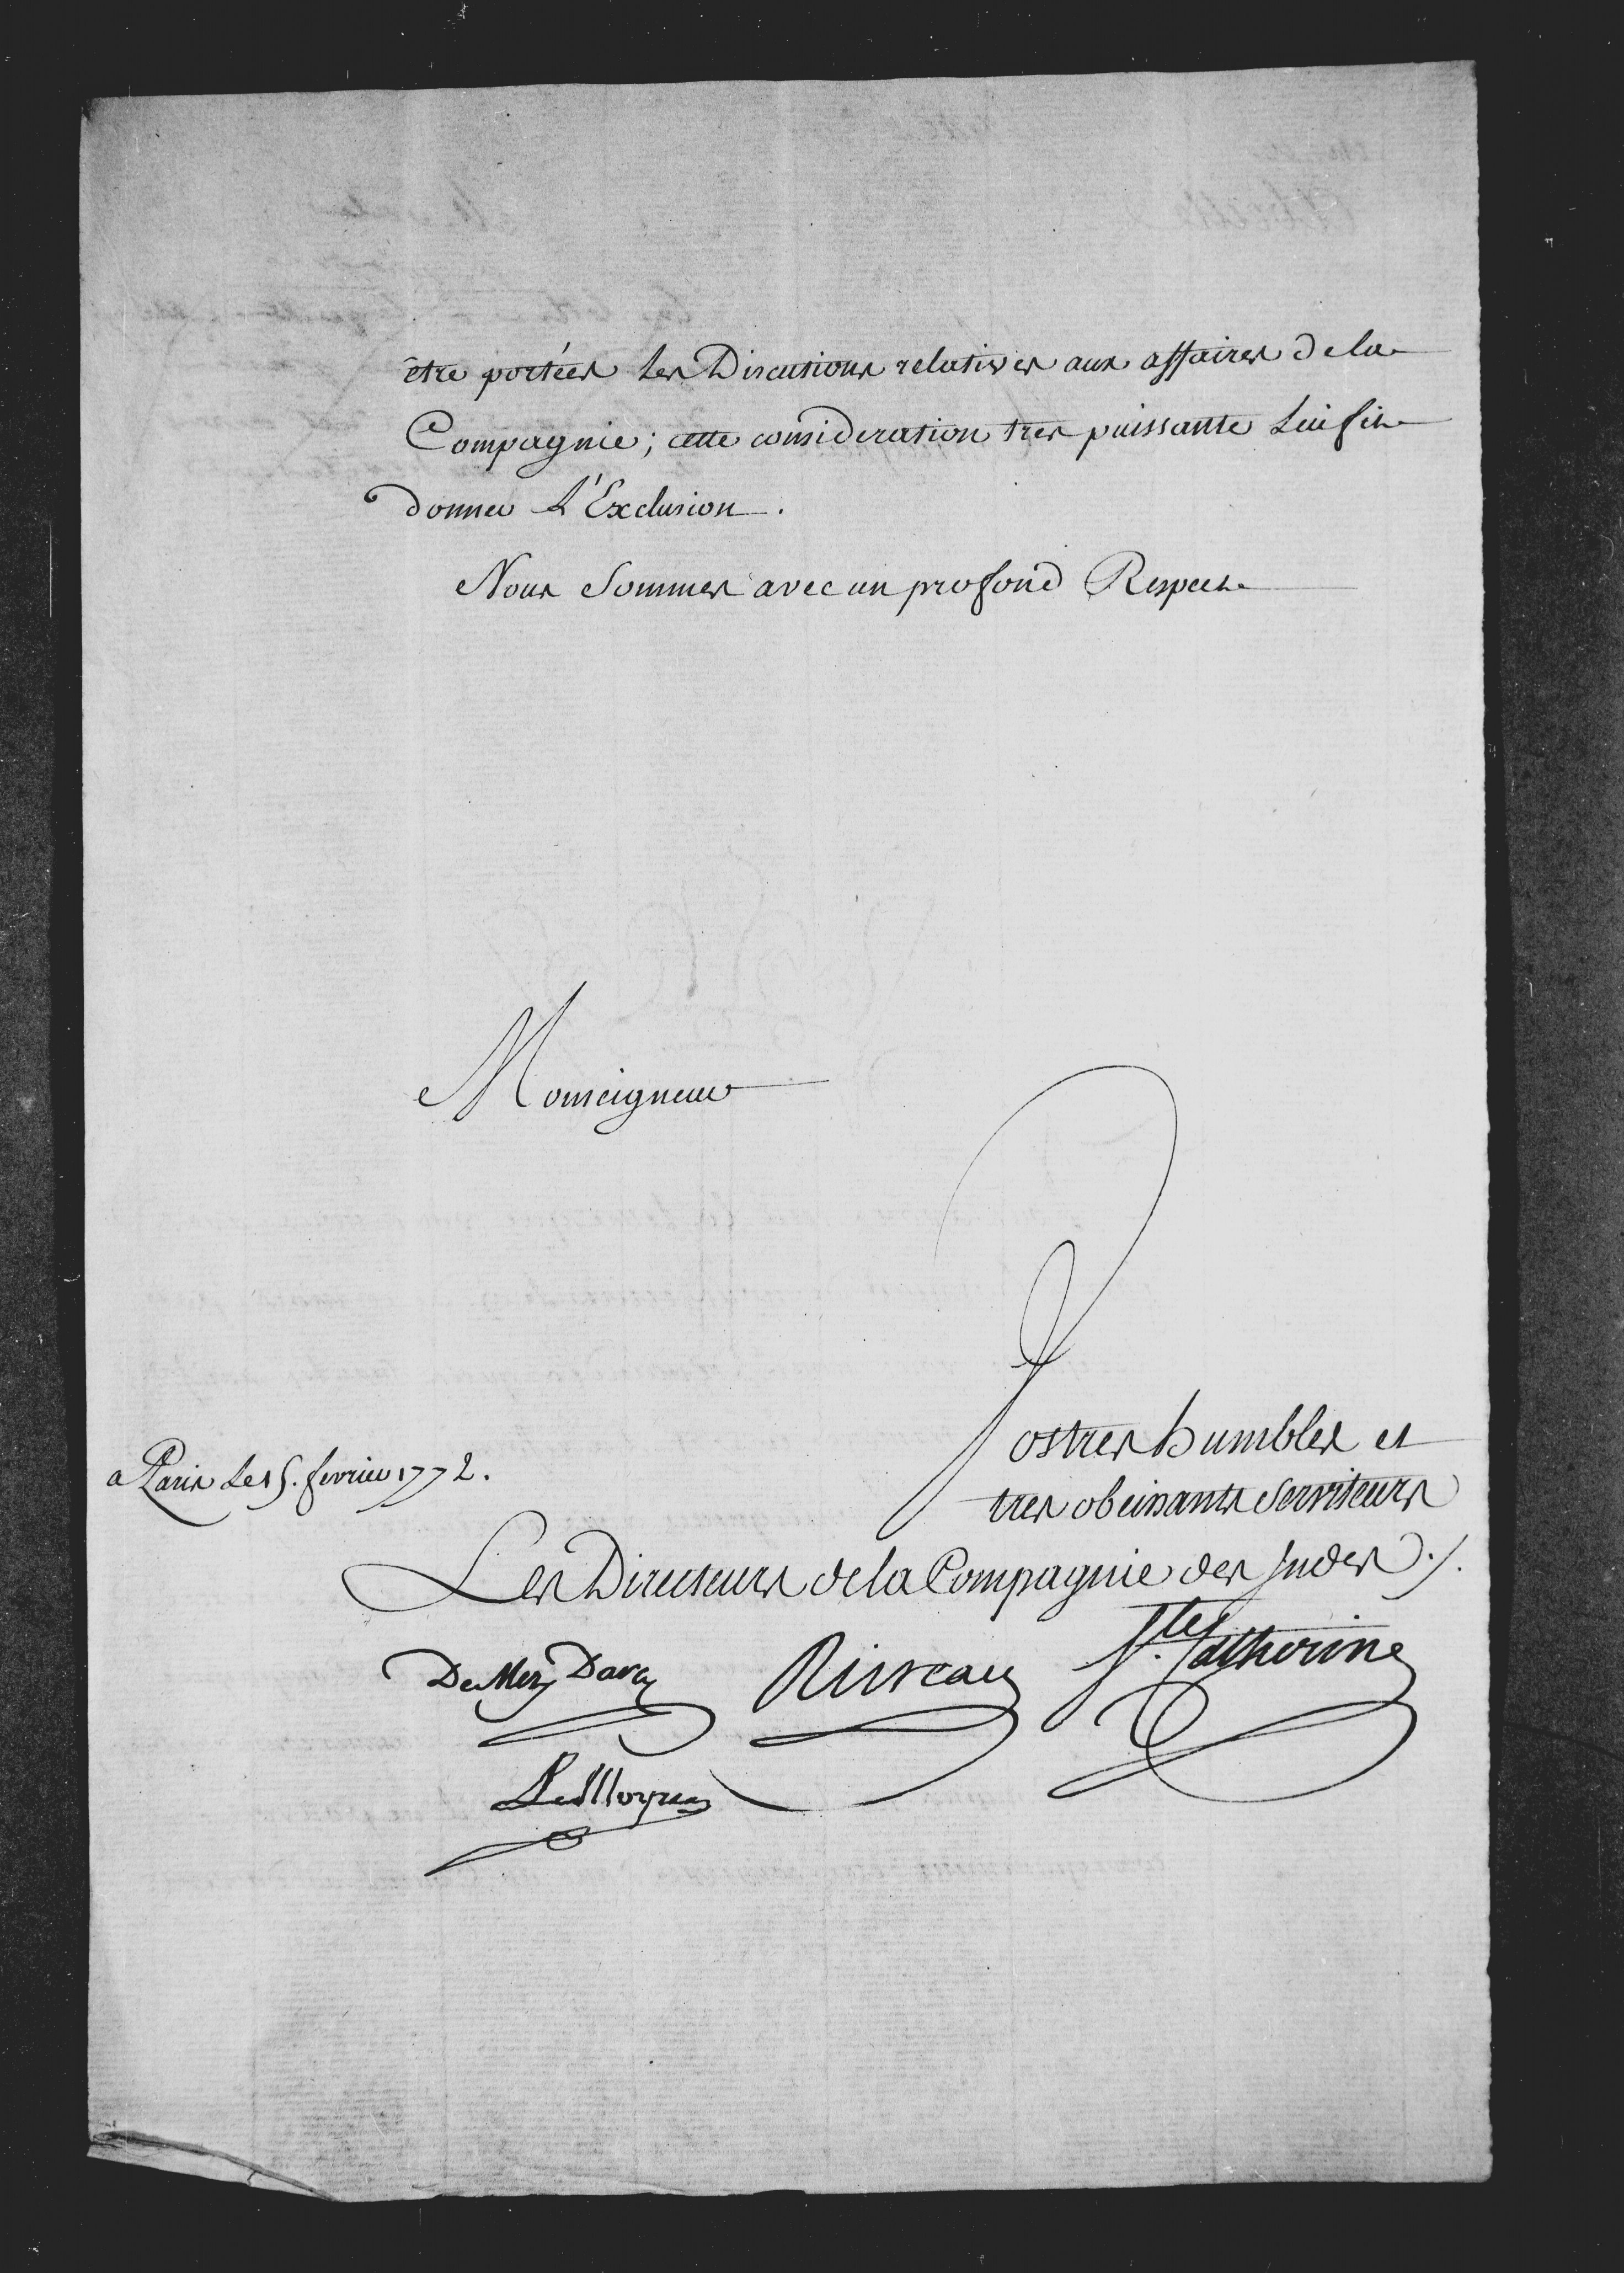 être portées les Discutions relatives aux affaires de la
Compagnie; cette consideration tres puissante lui fit
donner L'Exclusion.
Nous Sommes avec un profond Respect
Monseigneur
Vos tres humbles et
tres obeissants Serviteurs
a Paris le 15. fevrier 1772.
Les Directeurs de la Compagnie des Indes ./.
De Mery Darcy Risteau Ste. Catherine
Le Moyne